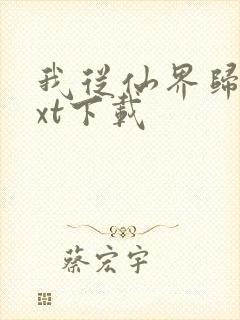 我從仙界歸
xt下載
蔡宏宇